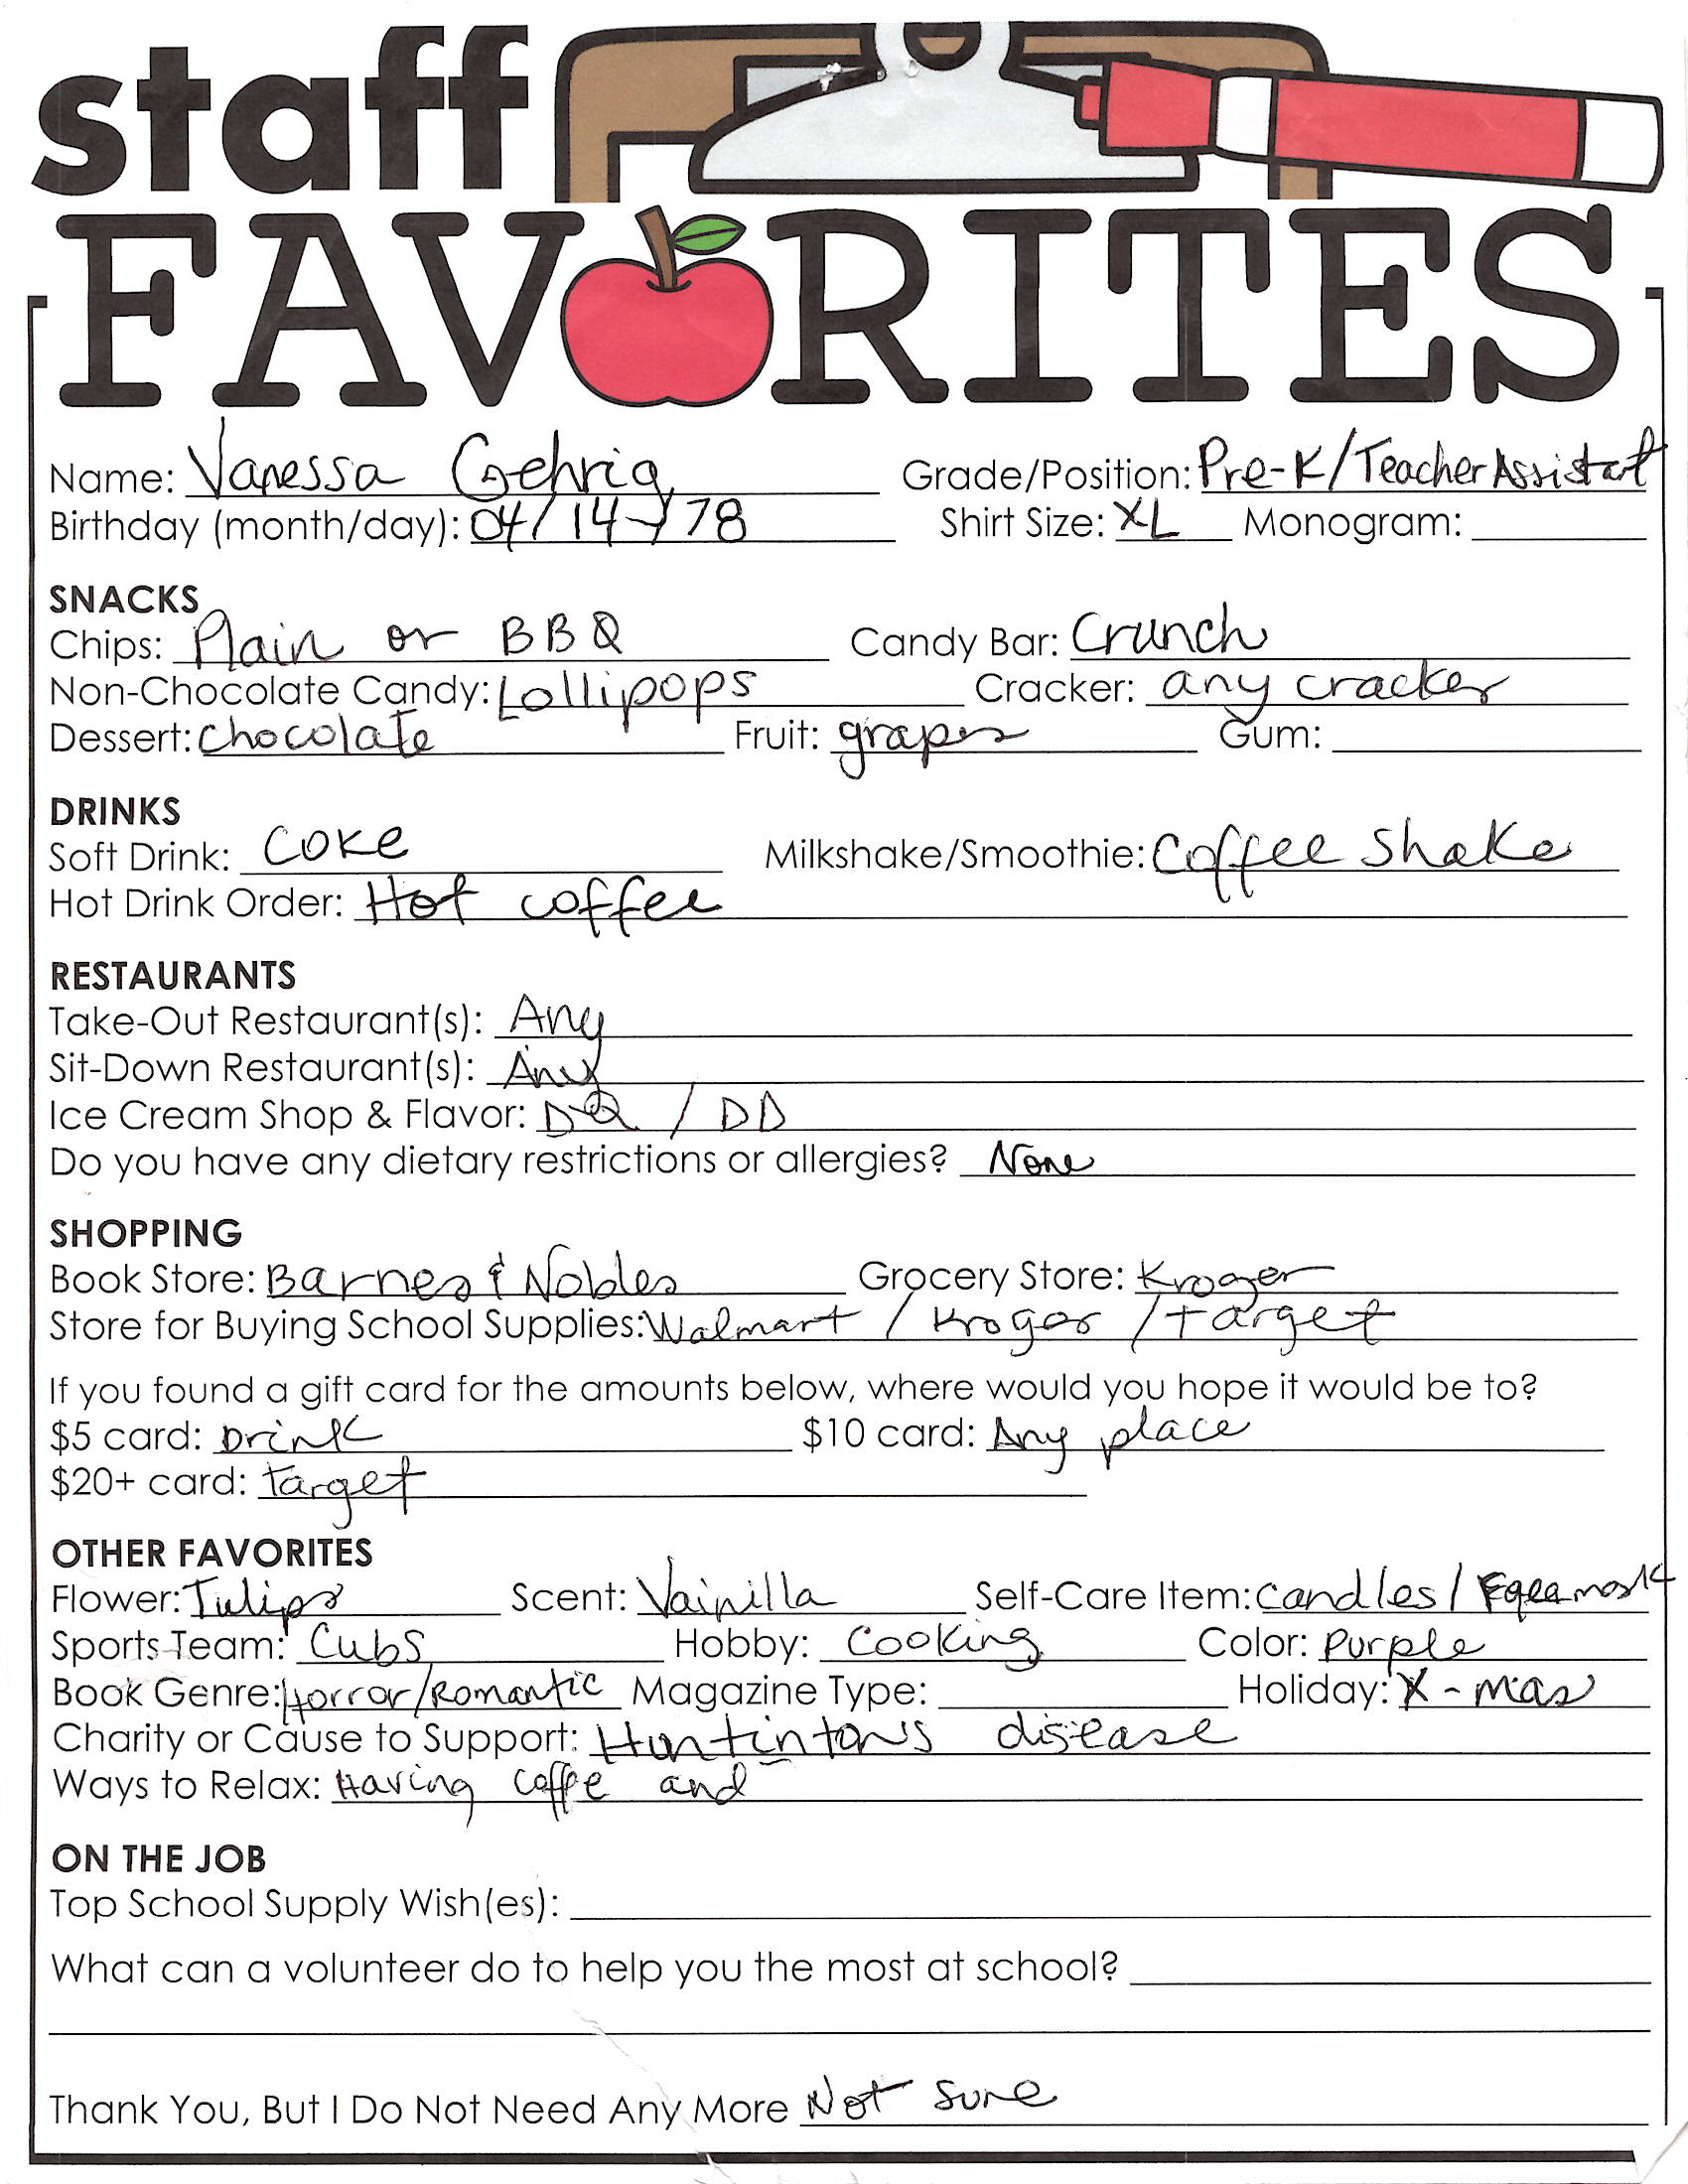 staff
FAVORITES
Name: Vanessa Gehrig Grade/Position: Pre-K/Teacher Assistant
Birthday (month/day): 04/14/78 Shirt Size: XL Monogram:
SNACKS
Chips: Plain or BBQ Candy Bar: Crunch
Non-Chocolate Candy: Lollipops Cracker: any cracker
Dessert: chocolate Fruit: grapes Gum:
DRINKS
Soft Drink: Coke Milkshake/Smoothie: Coffee shake
Hot Drink Order: Hot coffee
RESTAURANTS
Take-Out Restaurant(s): Any
Sit-Down Restaurant(s): Any
Ice Cream Shop & Flavor: DQ / DD
Do you have any dietary restrictions or allergies? None
SHOPPING
Book Store: Barnes & Nobles Grocery Store: Kroger
Store for Buying School Supplies: Walmart / Kroger / Target
If you found a gift card for the amounts below, where would you hope it would be to?
$5 card: Drink $10 card: Any place
$20+ card: Target
OTHER FAVORITES
Flower: Tulips Scent: Vainilla Self-Care Item: candles/
Sports Team: Cubs Hobby: Cooking Color: Purple
Book Genre: Horror/Romantic Magazine Type: Holiday: X-mas
Charity or Cause to Support: Huntintons disease
Ways to Relax: Having coffe and
ON THE JOB
Top School Supply Wish(es):
What can a volunteer do to help you the most at school?
Thank You, But I Do Not Need Any More Not sure